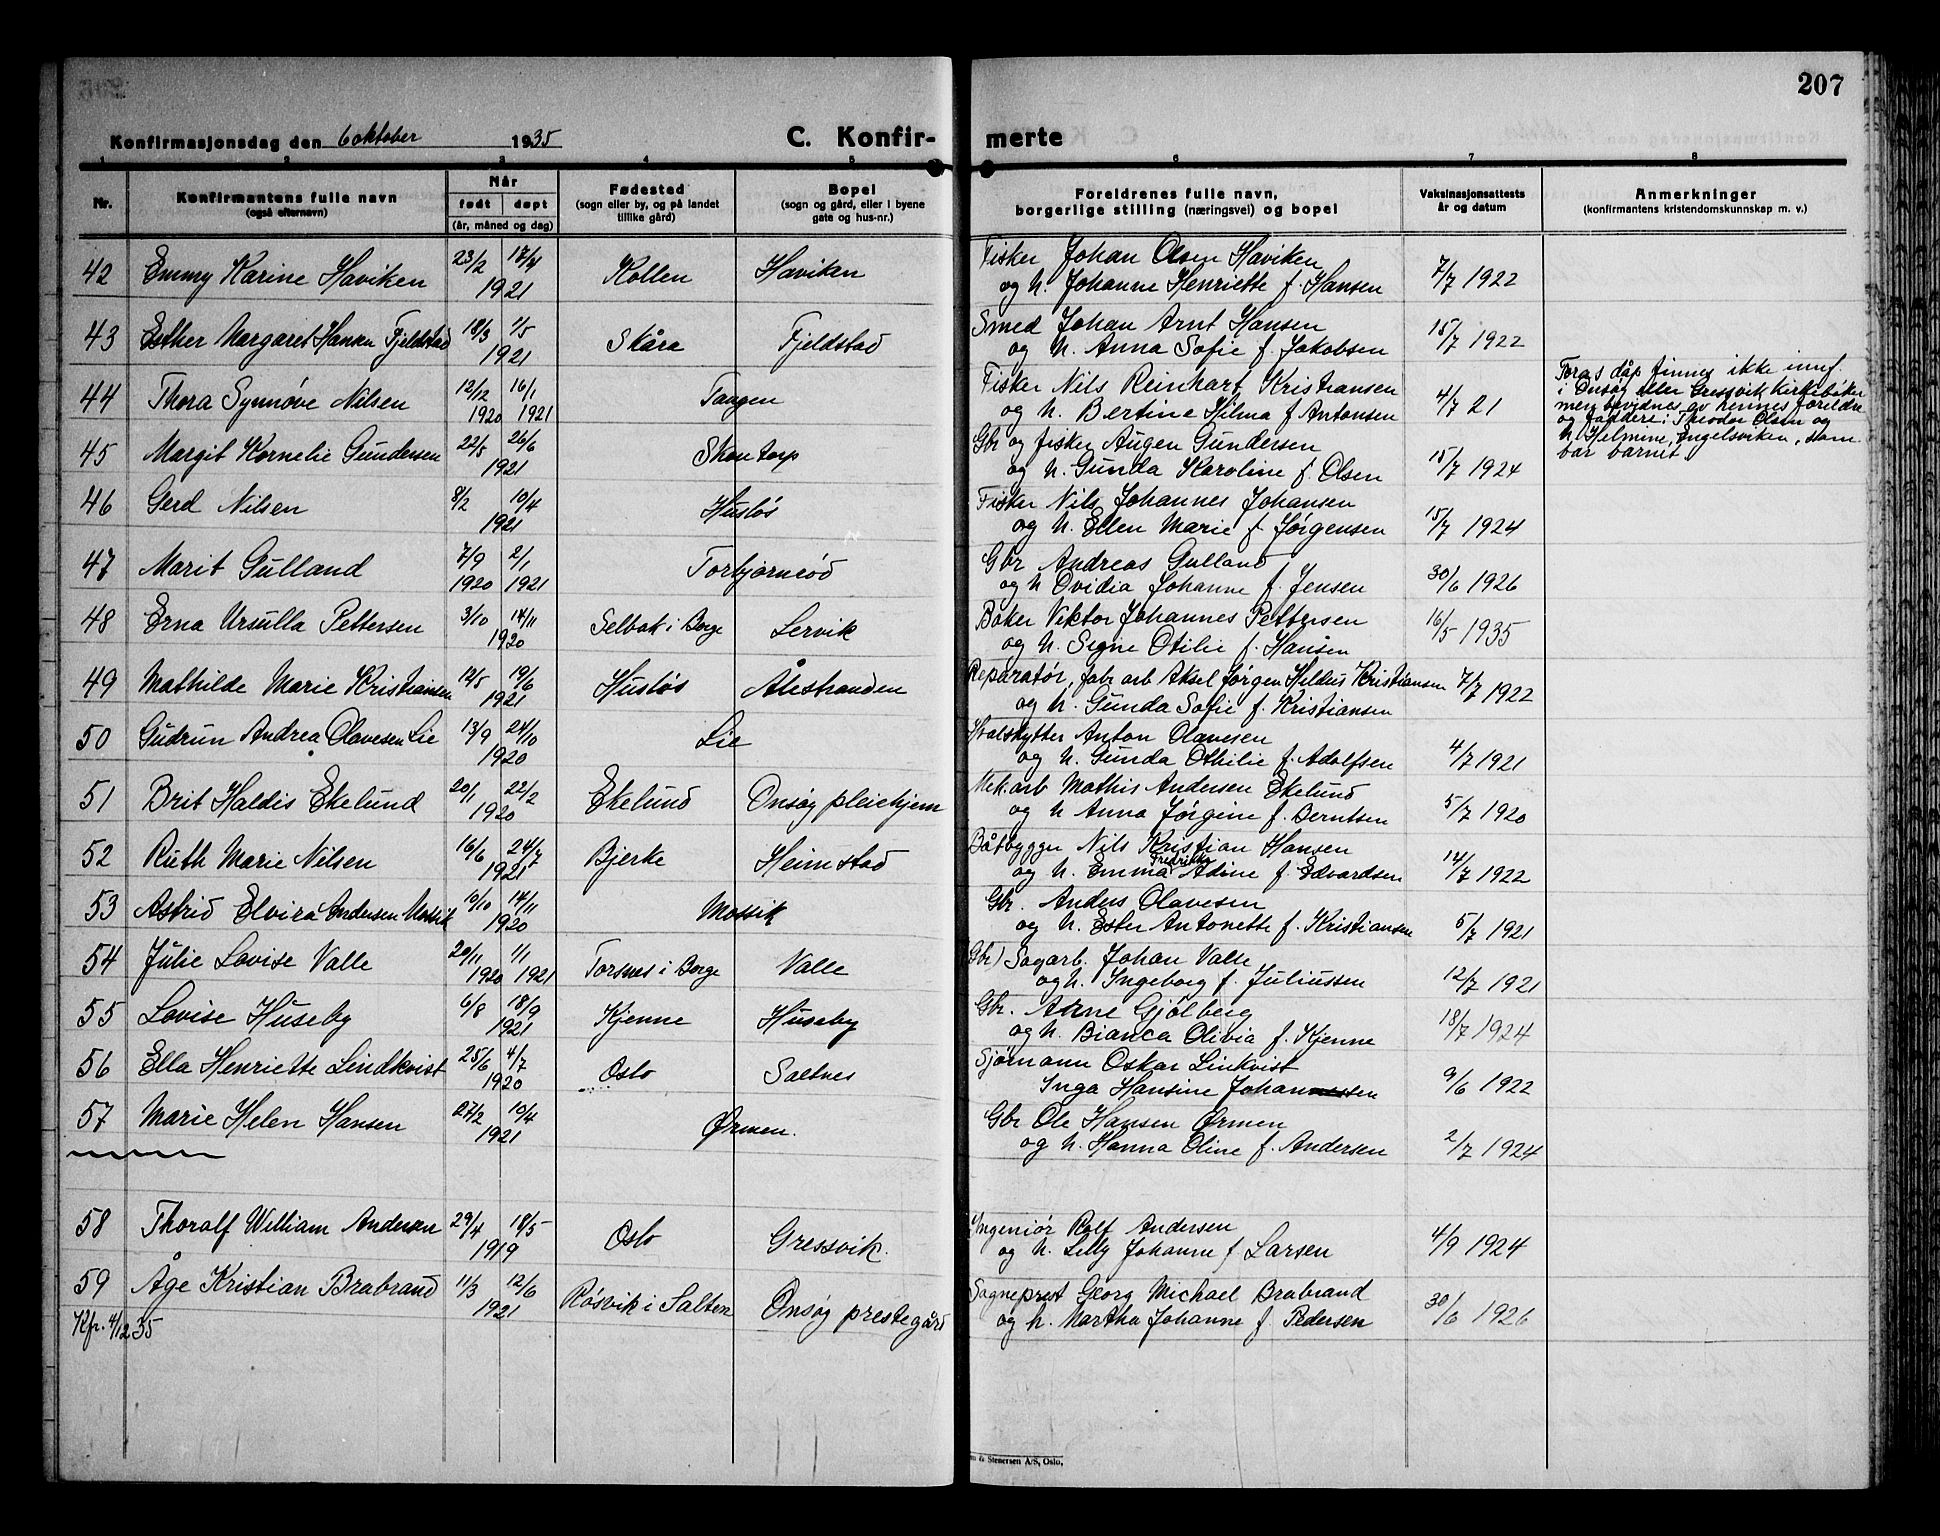 207
Konfirmasjonsdag den 6 oktober 1935
C. Konfir-
merte
1 2 3 4 5 6 7 8
Nr.
Konfirmantens fulle navn
(også efternavn)
Når
født døpt
(år, måned og dag)
Fødested
(sogn eller by, og på landet
tillike gård)
Bopel
(sogn og gård, eller i byene
gate og hus-nr.)
Foreldrenes fulle navn,
borgerlige stilling (næringsvei) og bopel
Vaksinasjonsattests
år og datum
Anmerkninger
(konfirmantens kristendomskunnskap m. v.)
42 Emmy Karine Haviken 23/2 17/4 1921 Kollen Haviken
Fisker Johan Olsen Haviken
og h. Johanne Henriette f. Hansen 7/7 1922
43 Esther Margaret Hansen Fjeldstad 18/3 1/5 1921 Skåra Fjeldstad
Smed Johan Arnt Hansen
og h. Anna Sofie f. Jakobsen 15/7 1922
44 Thora Synnøve Nilsen 12/12 1920 16/1 1921 Tangen
Fisker Nils Reinhart Kristiansen
og h. Bertine Hilma f. Antonsen 4/7 21
Toras dåp finnes ikke innf.
i Onsøy eller Gressvik Kirkebøker
men bevidnes av hennes foreldre
og faddere: Theodor Olsen og
h. Helmine, Engelsviken, som
bar barnet
45 Margit Kornelie Gundersen 22/5 26/6 1921 Skontorp
Gbr og fisker Augen Gundersen
og h. Gunda Karoline f. Olsen 15/7 1924
46 Gerd Nilsen 8/2 10/4 1921 Husløs
Fisker Nils Johannes Johansen
og h. Ellen Marie f Jørgensen 15/7 1924
47 Marit Gulland 7/9 1920 2/1 1921 Torbjørnrød
Gbr Andreas Gulland
og h Ovidia Johanne f. Jensen 30/6 1926
48 Erna Ursulla Pettersen 3/10 14/11 1920 Selbak i Borge Lervik
Baker Viktor Johannes Pettersen
og h. Signe Otilie f. Hansen 16/5 1935
49 Mathilde Marie Kristiansen 12/5 19/6 1921 Husløs Ålestranden
Reparatør, fabr arb Aksel Jørgen Heldus Kristiansen
og h. Gunda Sofie f. Kristiansen 7/7 1922
50 Gudrun Andrea Olavesen Lie 13/9 24/10 1920 Lie
Hvalskytter Anton Olavesen
og h. Gunda Othilie f. Adolfsen 4/7 1921
51 Brit Haldis Ekelund 20/1 22/2 1920 Ekelund Onsøy pleiehjem
Mek.arb Mathis Andersen Ekelund
og h Anna Jørgine f. Berntsen 5/7 1920
52 Ruth Marie Nilsen 16/6 24/7 1921 Bjerke Heimstad
Båtbygger Nils Kristian Hansen
og h. Emma Fredrikke Adine f. Edvardsen 14/7 1922
53 Astrid Elvira Andersen Mossik 10/10 14/11 1920 Mossik
Gbr. Anders Olavesen
og h. Ester Antonette f. Kristiansen 5/7 1921
54 Julie Lovise Valle 20/11 1920 1/1 1921 Torsnes i Borge Valle
Gbr) Sagarb. Johan Valle
og h. Ingeborg f. Juliussen 12/7 1921
55 Lovise Huseby 6/8 18/9 1921 Kjenne Huseby
Gbr. Arne Gjølberg
og h. Bianca Olivia f. Kjenne 18/7 1924
56 Ella Henriette Lindkvist 25/6 4/7 1920 Oslo Saltnes
Sjømann Oskar Linkvist
Inga Hansine Johannessen 9/6 1922
57 Marie Helen Hansen 27/2 10/4 1921 Ørmen.
Gbr Ole Hansen Ørmen
og h. Hanna Oline f. Andersen 2/7 1924
58 Thoralf William Andersen 29/4 18/5 1919 Oslo Gressvik.
Ingeniør Rolf Andersen
og h. Lilly Johanne f Larsen 4/9 1924
59 Åge Kristian Brabrand 11/3 12/6 1921 Røsvik i Salten Onsøy prestegård
Kfr. 4/12 35
Sogneprest Georg Michael Brabrand
og h. Martha Johanne f. Pedersen 30/6 1926
& Stenersen A/S, Oslo.